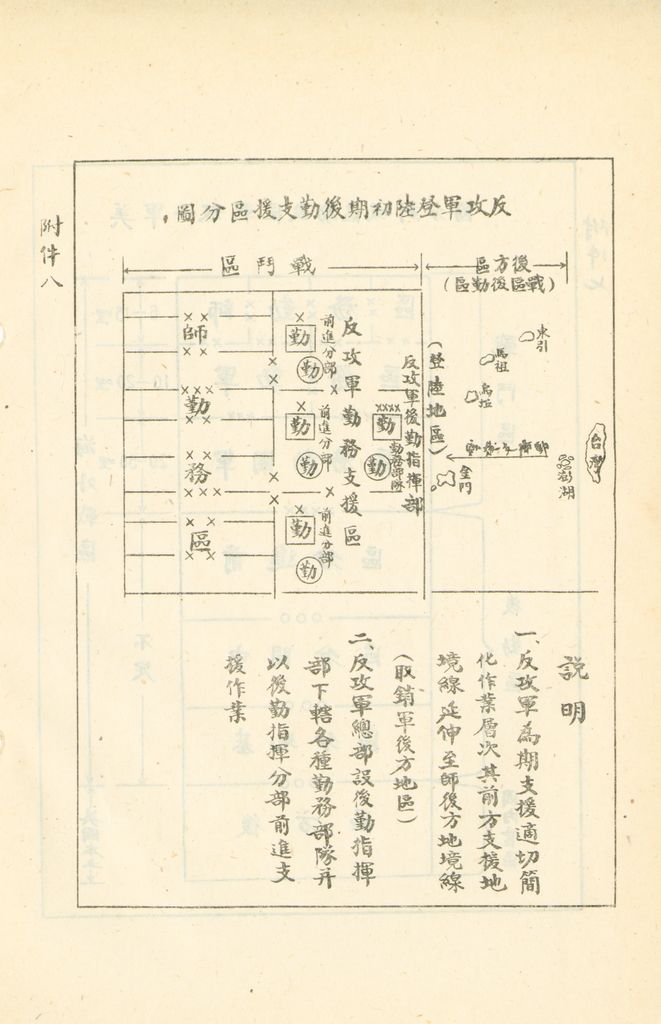 附件八
反攻軍登陸初期後勤支援區分圖
後方區
(戰區後勤區)
戰鬥區
東引
馬祖
烏坵
台灣
澎湖
金門
(登陸地區)
反攻軍後勤指揮部
勤
勤
勤務部隊
反攻軍勤務支援區
前進分部
勤
勤
前進分部
勤
勤
前進分部
勤
勤
師
勤
務
區
說明
一、反攻軍為期支援適切簡
化作業層次其前方支援地
境線延伸至師後方地境線
(取銷軍後方地區)
二、反攻軍總部設後勤指揮
部下轄各種勤務部隊并
以後勤指揮分部前進支
援作業